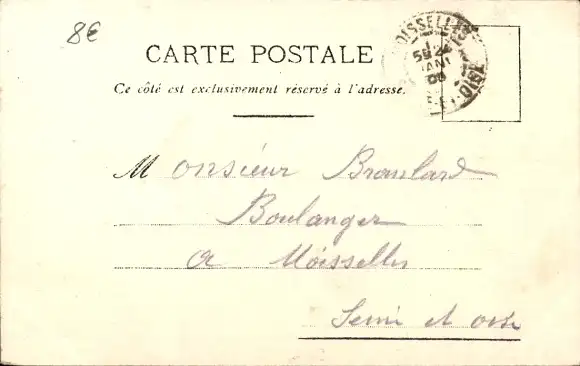 8€
CARTE POSTALE
Ce côté est exclusivement réservé à l'adresse.
MOISSELLES
5E 24
JANV
SEINE-ET-OISE
Monsieur Braulard
Boulanger
a Moisselles
Seine et oise